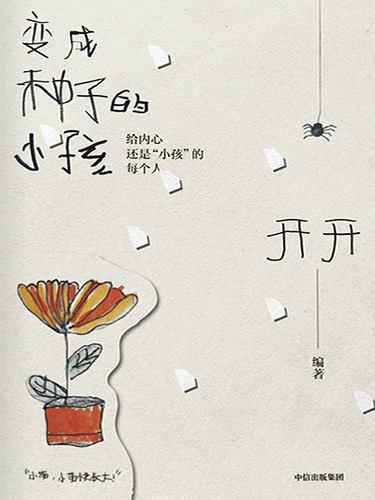 变成
种子的
小孩
给内心
还是“小孩”的
每个人
开开
编著
中信出版集团